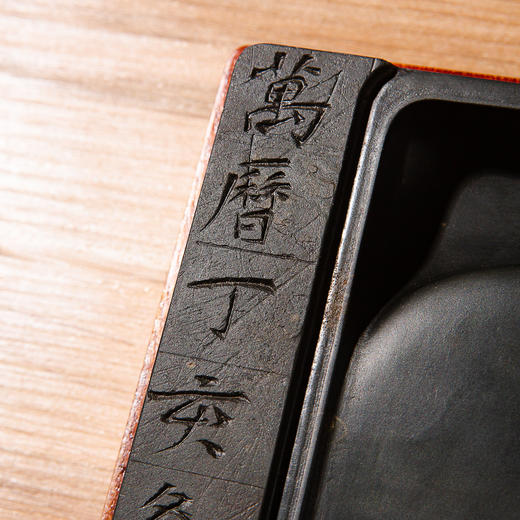 萬曆丁亥